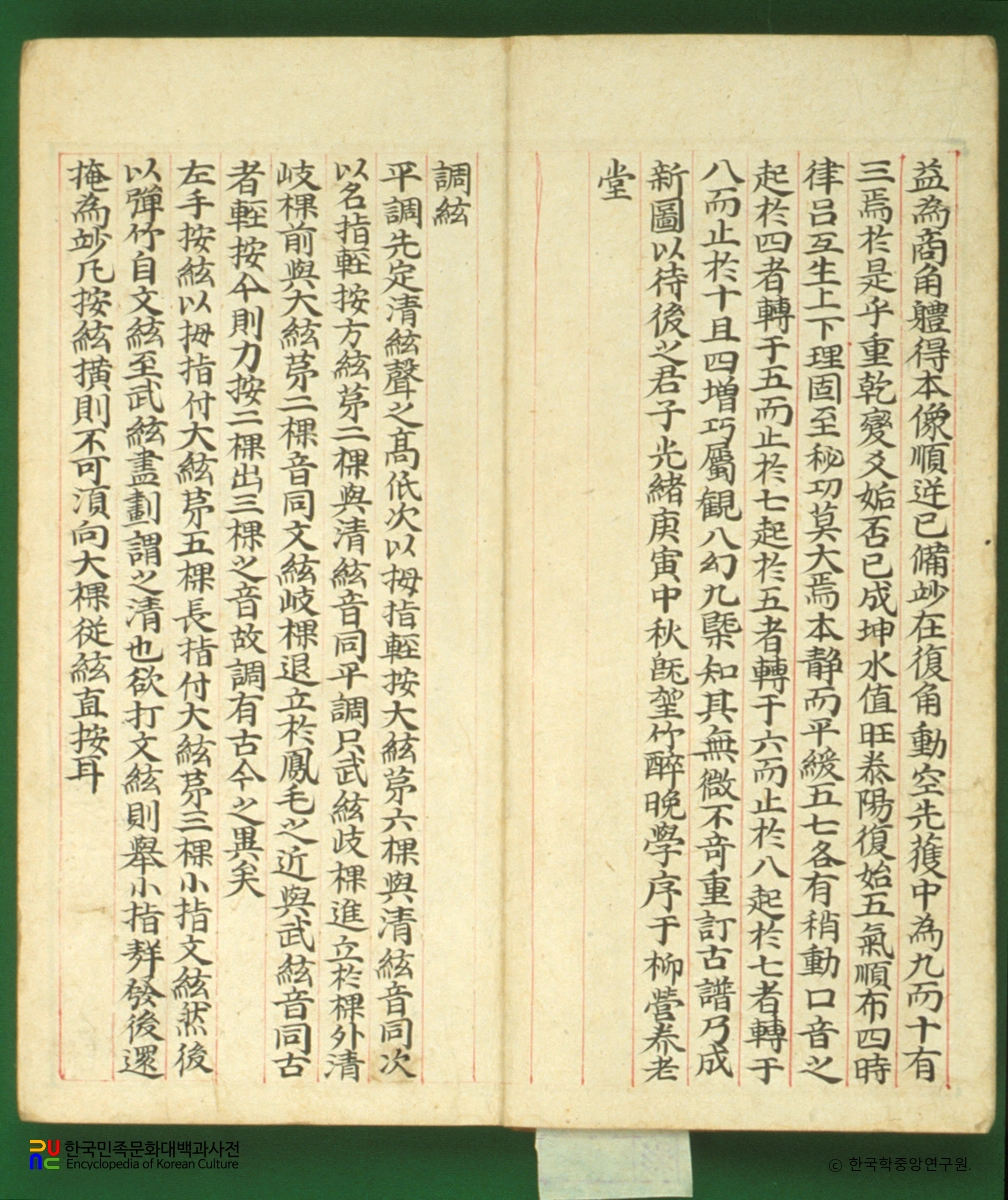 益為商角軆得本像順逆已備妙在復角動空先蒦中為九而十有
三焉於是乎重乾變爻姤否已成坤水值旺泰陽復始五氣順布四時
律呂互生上下理固至秘功莫大焉本静而平緩五七各有稍動口音之
起於四者轉于五而止於七起於五者轉于六而止於八起於七者轉于
八而止於十且四增巧屬観八幻九槩知其無微不奇重訂古譜乃成
新圖以待後之君子光緒庚寅中秋旣望竹醉晚學序于柳營养老
堂
調絃
平調先定清絃聲之髙低次以拇指輕按大絃苐六棵與清絃音同次
以名指輕按方絃苐二棵與清絃音同平調只武絃岐棵進立於棵外清
岐棵前與大絃苐二棵音同文絃岐棵退立於鳳毛之近與武絃音同古
者輕按今則力按二棵出三棵之音故調有古今之異矣
左手按絃以拇指付大絃苐五棵長指付大絃苐三棵小指文絃然後
以彈竹自文絃至武絃盡劃謂之清也欲打文絃則舉小指發後還
掩為妙凡按絃横則不可須向大棵從絃直按耳
한국민족문화대백과사전
Encyclopedia of Korean Culture
ⓒ 한국학중앙연구원.